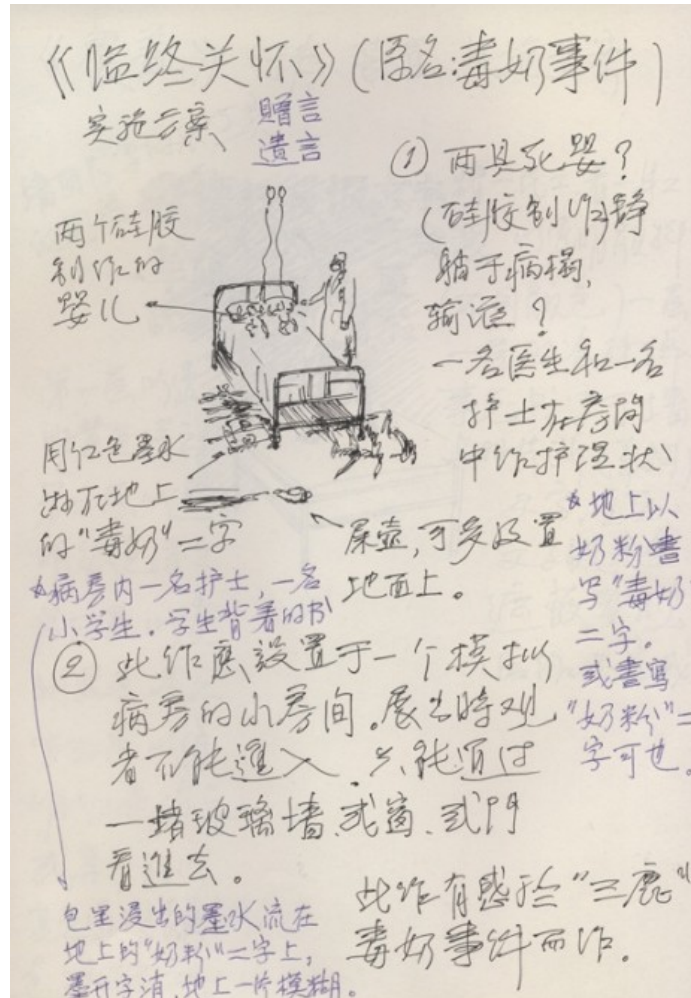 《临终关怀》(原名:毒奶事件)
实施方案
贈言
遺言
① 两具死婴?
(硅胶制作)静
躺于病榻,
输液?
一名医生和一名
护士在房间
中作护理状
两个硅胶
制作的
婴儿
用红色墨水
涂在地上
的"毒奶"二字
尿壶,可多设置
地面上。
*地上以
奶粉書
写"毒奶
二字。
或書寫
"奶粉"二
字可也。
*病房内一名护士,一名
小学生.学生背着的书
② 此作應設置于一个模拟
病房的小房间。展出時观
者不能進入.只能通过
一堵玻璃墙、或窗、或門
看進去。
包里浸出的墨水流在
地上的"奶粉"二字上,
墨开字消,地上一片模糊。
此作有感於"三鹿"
毒奶事件而作。